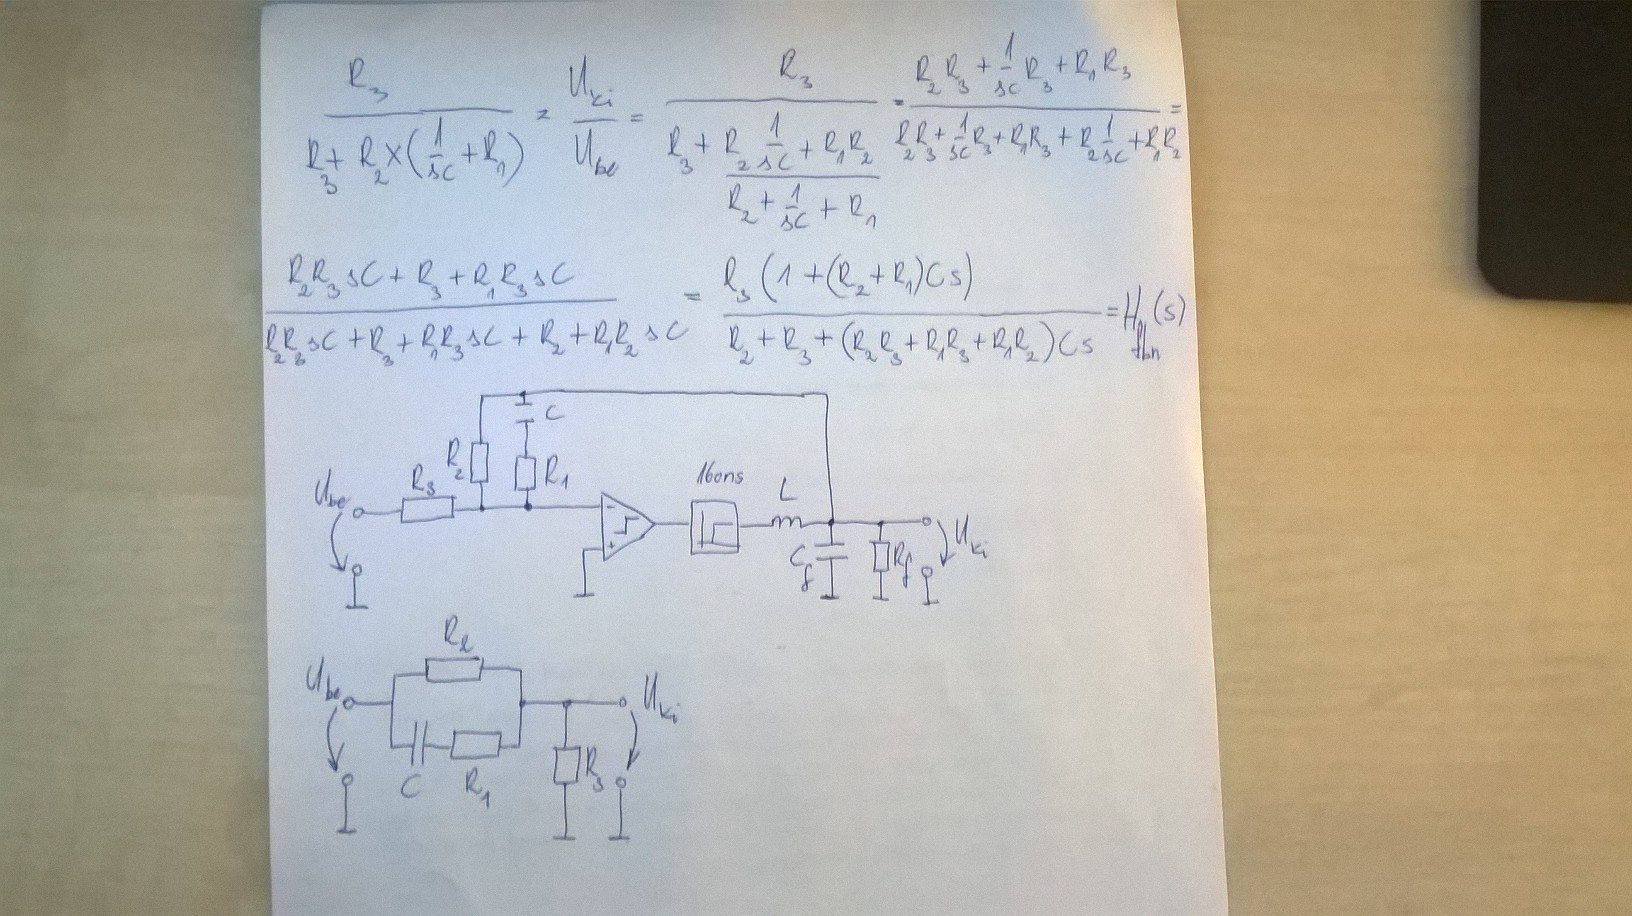 R₃ / (R₃ + R₂ × (1/sC + R₁)) = U_ki / U_be = R₃ / (R₃ + (R₂ 1/sC + R₁R₂) / (R₂ + 1/sC + R₁)) = (R₂R₃ + 1/sC R₃ + R₁R₃) / (R₂R₃ + 1/sC R₃ + R₁R₃ + R₂ 1/sC + R₁R₂) =
(R₂R₃sC + R₃ + R₁R₃sC) / (R₂R₃sC + R₃ + R₁R₃sC + R₂ + R₁R₂sC) = R₃(1 + (R₂ + R₁)Cs) / (R₂ + R₃ + (R₂R₃ + R₁R₃ + R₁R₂)Cs) = H_fbn(s)
C
R₂
R₁
R₃
U_be
160ns
L
- +
C_f
R_f
U_ki
R₂
U_be
U_ki
C
R₁
R₃